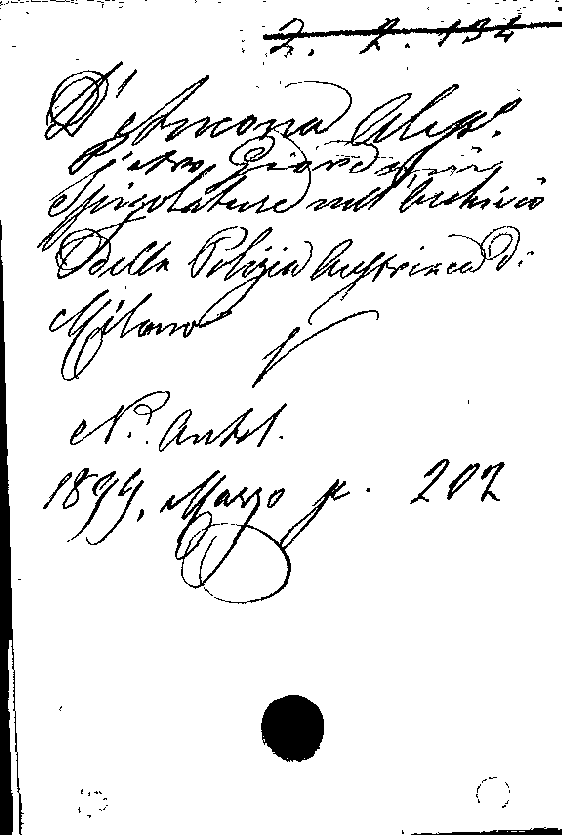 2. 2. 134
D'Ancona Aless.
Pietro Giordani
Spigolature nell'Archivio
Della Polizia Austriaca di
Milano
N. Antol.
1899, Marzo p. 202